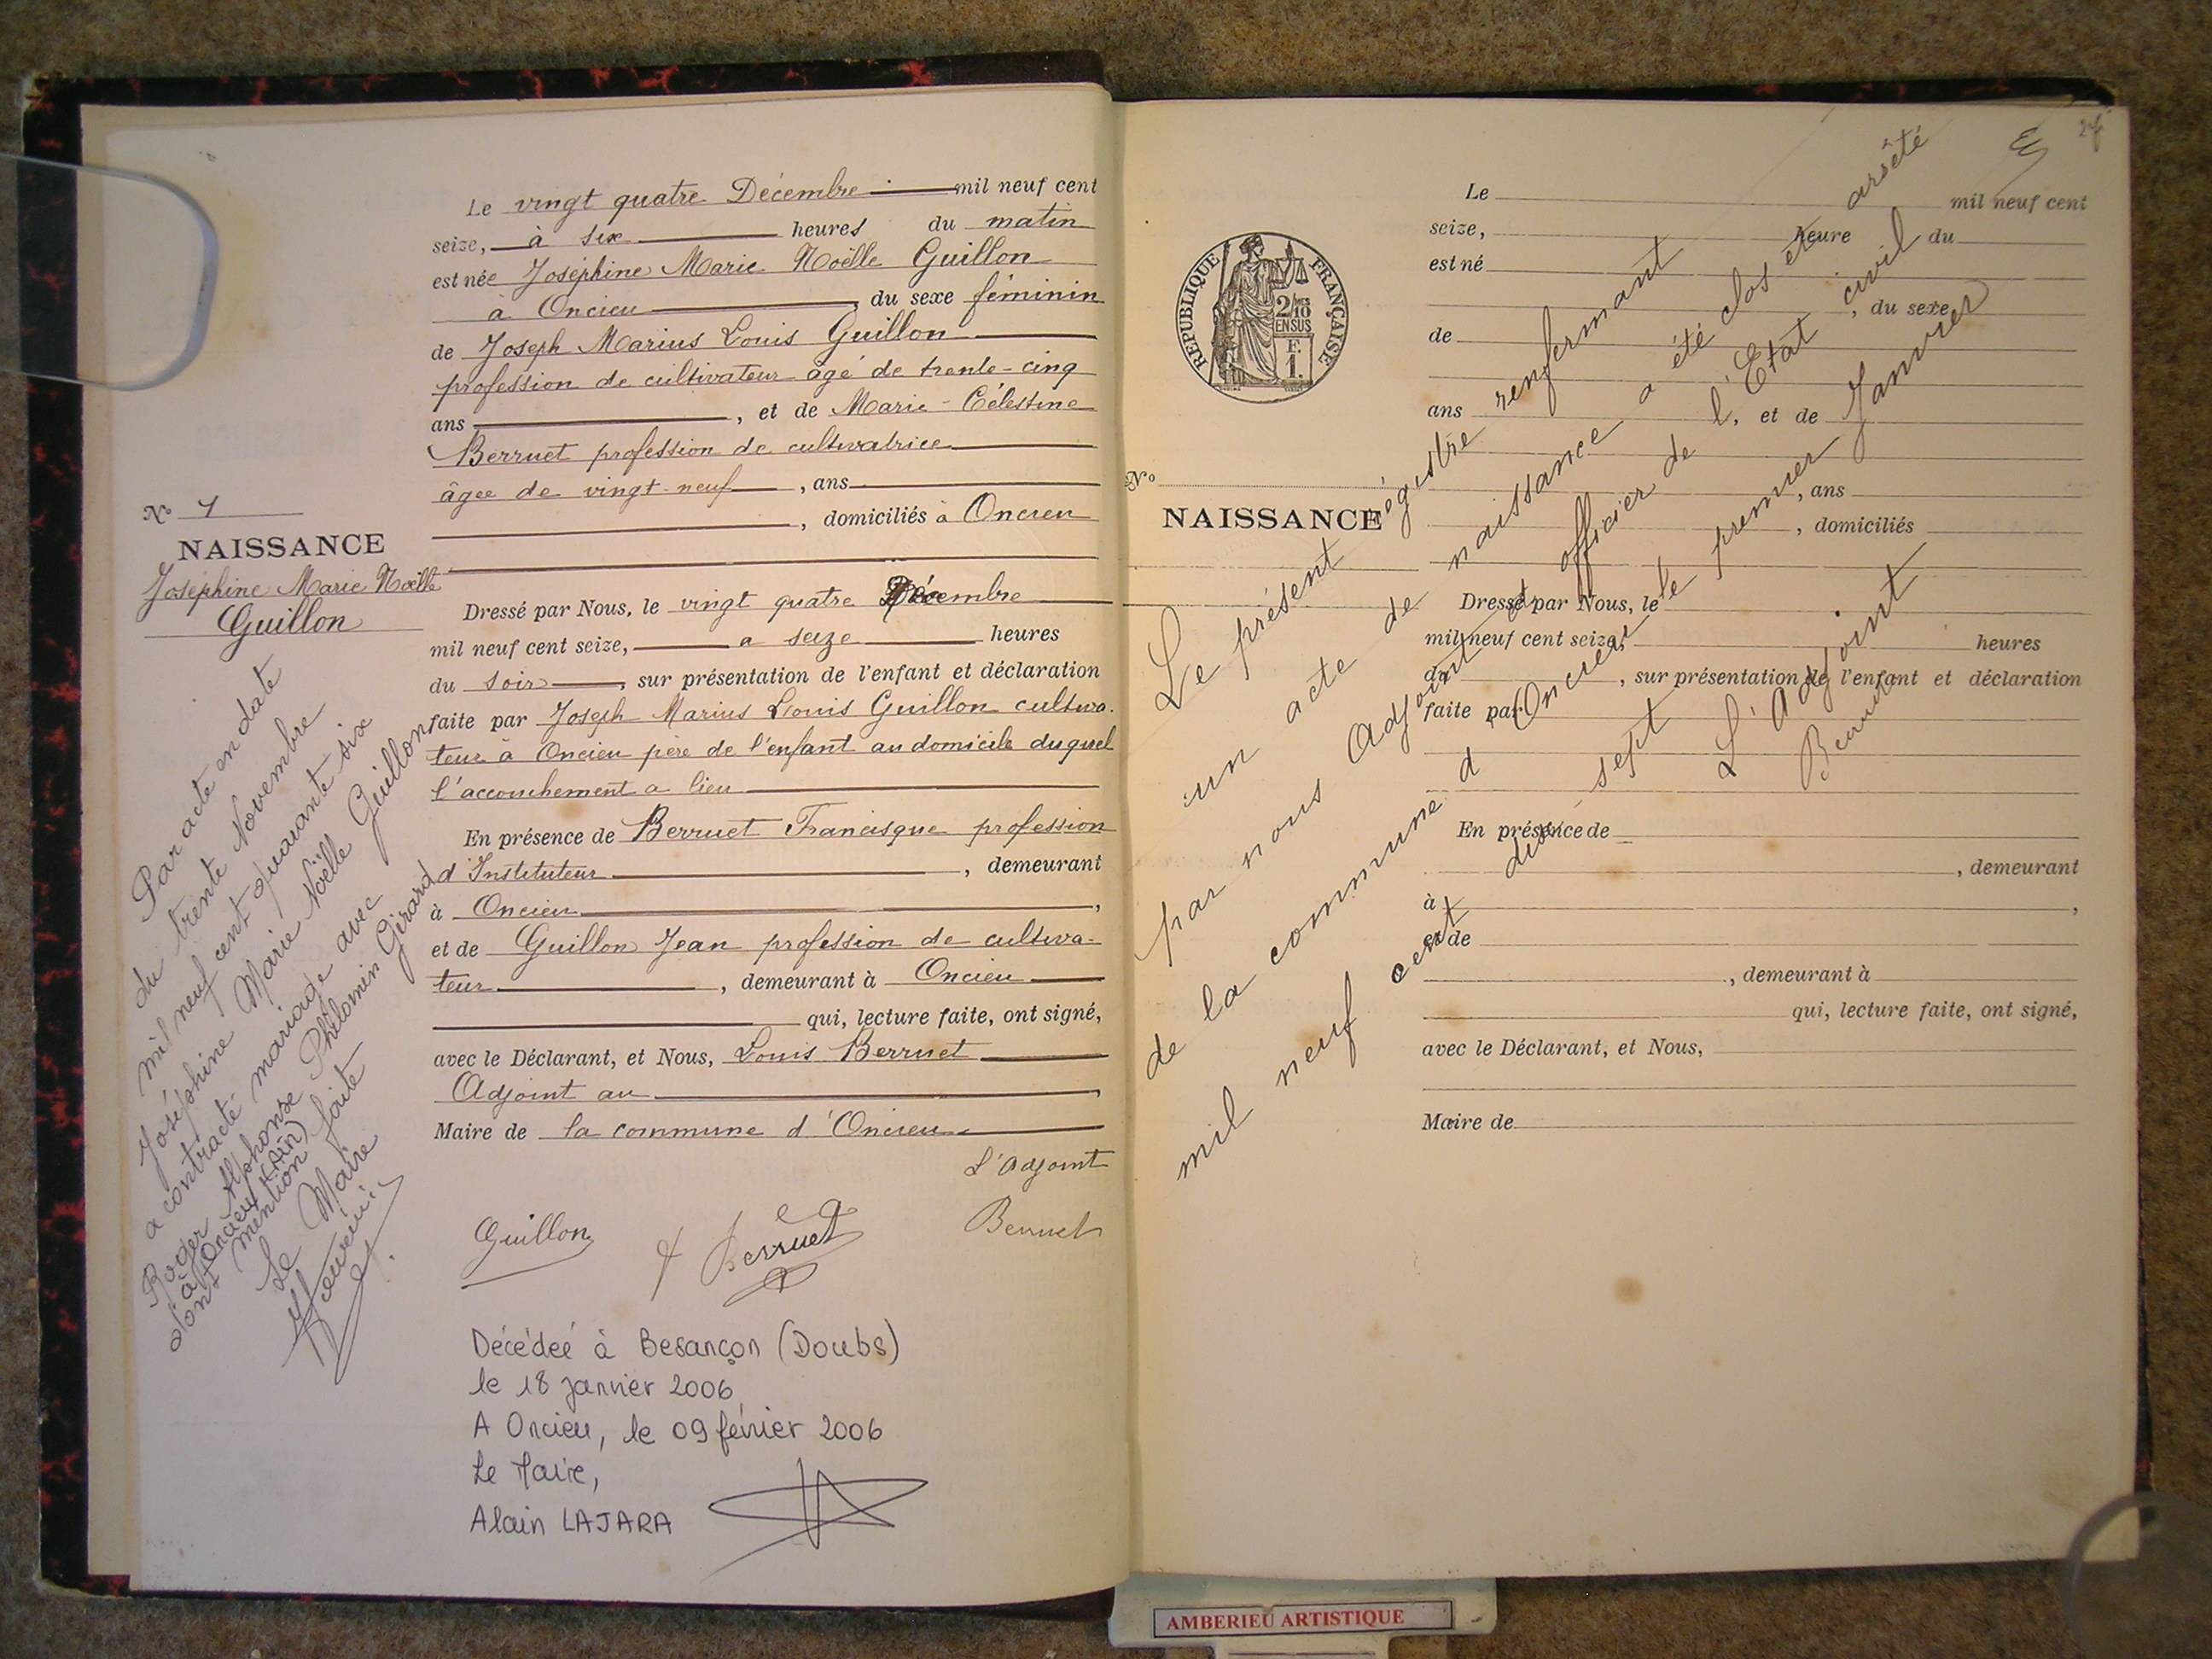 Le vingt quatre Décembre mil neuf cent
seize, à six heures du matin
est née Joséphine Marie Noëlle Guillon
à Oncieu, du sexe féminin
de Joseph Marius Louis Guillon
profession de cultivateur âgé de trente-cinq
ans, et de Marie-Célestine
Berruet profession de cultivatrice
âgée de vingt-neuf, ans
, domiciliés à Oncieu
Nº 1
NAISSANCE
Joséphine Marie Noëlle
Guillon
Dressé par Nous, le vingt quatre Décembre
mil neuf cent seize, a seize heures
du soir, sur présentation de l'enfant et déclaration
faite par Joseph Marius Louis Guillon cultiva-
teur à Oncieu père de l'enfant au domicile duquel
l'accouchement a lieu
En présence de Berruet Francisque profession
d'Instituteur, demeurant
à Oncieu,
et de Guillon Jean profession de cultiva-
teur, demeurant à Oncieu
qui, lecture faite, ont signé,
avec le Déclarant, et Nous, Louis Berruet
Adjoint au
Maire de la commune d'Oncieu
L'Adjoint
Guillon
Berruet
Berruet
Par acte en date
du trente Novembre
mil neuf cent quarante six
Joséphine Marie Noëlle Guillon
a contracté mariage avec
Roger Alphonse Philomin Girard
à Oncieu (Ain)
dont mention faite
Le Maire
Décédée à Besançon (Doubs)
le 18 janvier 2006
A Oncieu, le 09 février 2006
Le Maire,
Alain LAJARA
27
RÉPUBLIQUE FRANÇAISE
2/10
EN SUS
F.
1.
Le mil neuf cent
seize, heure du
est né
, du sexe
de
ans, et de
, ans
, domiciliés
Nº
NAISSANCE
Dressé par Nous, le
mil neuf cent seize, heures
du, sur présentation de l'enfant et déclaration
faite par
En présence de
, demeurant
à,
et de
, demeurant à
qui, lecture faite, ont signé,
avec le Déclarant, et Nous,
Maire de
Le présent régistre renfermant
un acte de naissance a été clos et arrêté
par nous Adjoint et officier de l'Etat civil
de la commune d'Oncieu le premier Janvier
mil neuf cent dix sept
L'Adjoint
Berruet
AMBERIEU ARTISTIQUE